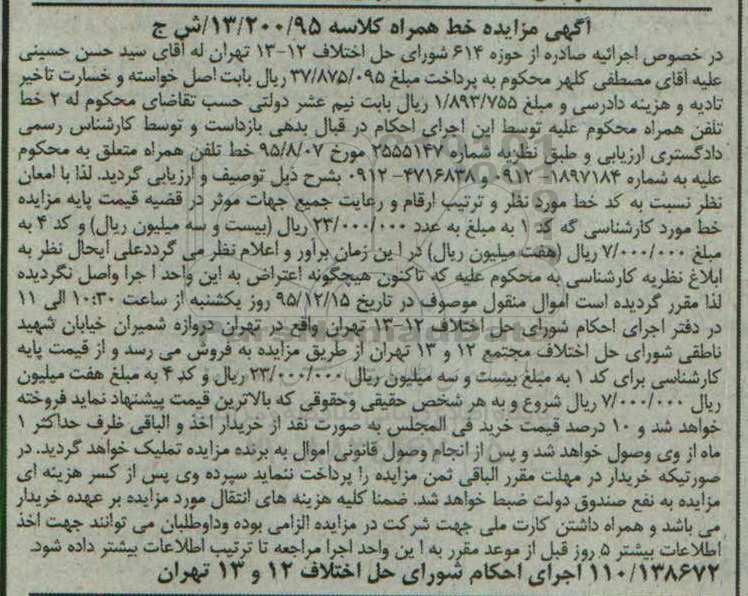 آگهی مزایده خط همراه کلاسه ۱۳/۲۰۰/۹۵/ش ج
در خصوص اجرائیه صادره از حوزه ۶۱۴ شورای حل اختلاف ۱۲-۱۳ تهران له آقای سید حسن حسینی
علیه آقای مصطفی کلهر محکوم به پرداخت مبلغ ۳۷/۸۷۵/۰۹۵ ریال بابت اصل خواسته و خسارت تاخیر
تادیه و هزینه دادرسی و مبلغ ۱/۸۹۳/۷۵۵ ریال بابت نیم عشر دولتی حسب تقاضای محکوم له ۲ خط
تلفن همراه محکوم علیه توسط این اجرای احکام در قبال بدهی بازداست و توسط کارشناس رسمی
دادگستری ارزیابی و طبق نظریه شماره ۲۵۵۵۱۴۷ مورخ ۹۵/۸/۰۷ خط تلفن همراه متعلق به محکوم
علیه به شماره ۱۸۹۷۱۸۴-۰۹۱۲ و ۴۷۱۶۸۳۸-۰۹۱۲ بشرح ذیل توصیف و ارزیابی گردید. لذا با امعان
نظر نسبت به کد خط مورد نظر و ترتیب ارقام و رعایت جمیع جهات موثر در قضیه قیمت پایه مزایده
خط مورد کارشناسی که کد ۱ به مبلغ به عدد ۲۳/۰۰۰/۰۰۰ ریال (بیست و سه میلیون ریال) و کد ۴ به
مبلغ ۷/۰۰۰/۰۰۰ ریال (هفت میلیون ریال) در این زمان برآور و اعلام نظر می گرددعلی ایحال نظر به
ابلاغ نظریه کارشناسی به محکوم علیه که تاکنون هیچگونه اعتراض به این واحد ا جرا واصل نگردیده
لذا مقرر گردیده است اموال منقول موصوف در تاریخ ۹۵/۱۲/۱۵ روز یکشنبه از ساعت ۱۰:۳۰ الی ۱۱
در دفتر اجرای احکام شورای حل اختلاف ۱۲-۱۳ تهران واقع در تهران دروازه شمیران خیابان شهید
ناطقی شورای حل اختلاف مجتمع ۱۲ و ۱۳ تهران از طریق مزایده به فروش می رسد و از قیمت پایه
کارشناسی برای کد ۱ به مبلغ بیست و سه میلیون ریال ۲۳/۰۰۰/۰۰۰ ریال و کد ۴ به مبلغ هفت میلیون
ریال ۷/۰۰۰/۰۰۰ ریال شروع و به هر شخص حقیقی وحقوقی که بالاترین قیمت پیشنهاد نماید فروخته
خواهد شد و ۱۰ درصد قیمت خرید فی المجلس به صورت نقد از خریدار اخذ و الباقی ظرف حداکثر ۱
ماه از وی وصول خواهد شد و پس از انجام وصول قانونی اموال به برنده مزایده تملیک خواهد گردید. در
صورتیکه خریدار در مهلت مقرر الباقی ثمن مزایده را پرداخت ننماید سپرده وی پس از کسر هزینه ای
مزایده به نفع صندوق دولت ضبط خواهد شد. ضمنا کلیه هزینه های انتقال مورد مزایده بر عهده خریدار
می باشد و همراه داشتن کارت ملی جهت شرکت در مزایده الزامی بوده وداوطلبان می توانند جهت اخذ
اطلاعات بیشتر ۵ روز قبل از موعد مقرر به این واحد اجرا مراجعه تا ترتیب اطلاعات بیشتر داده شود.
۱۱۰/۱۳۸۶۷۲ اجرای احکام شورای حل اختلاف ۱۲ و ۱۳ تهران